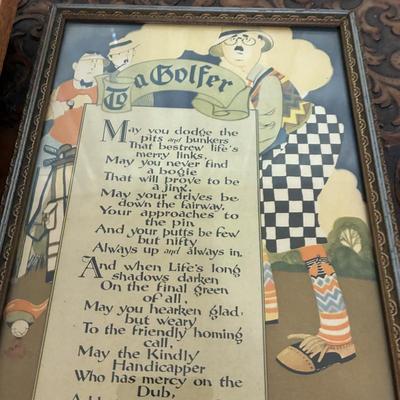 To a Golfer
May you dodge the
pits and bunkers
That bestrew life's
merry links,
May you never find
a bogie
That will prove to be
a jinx.
May your drives be
down the fairway,
Your approaches to
the pin
And your putts be few
but nifty
Always up and always in.
And when Life's long
shadows darken
On the final green
of all,
May you hearken glad,
but weary
To the friendly homing
call,
May the Kindly
Handicapper
Who has mercy on the
Dub,